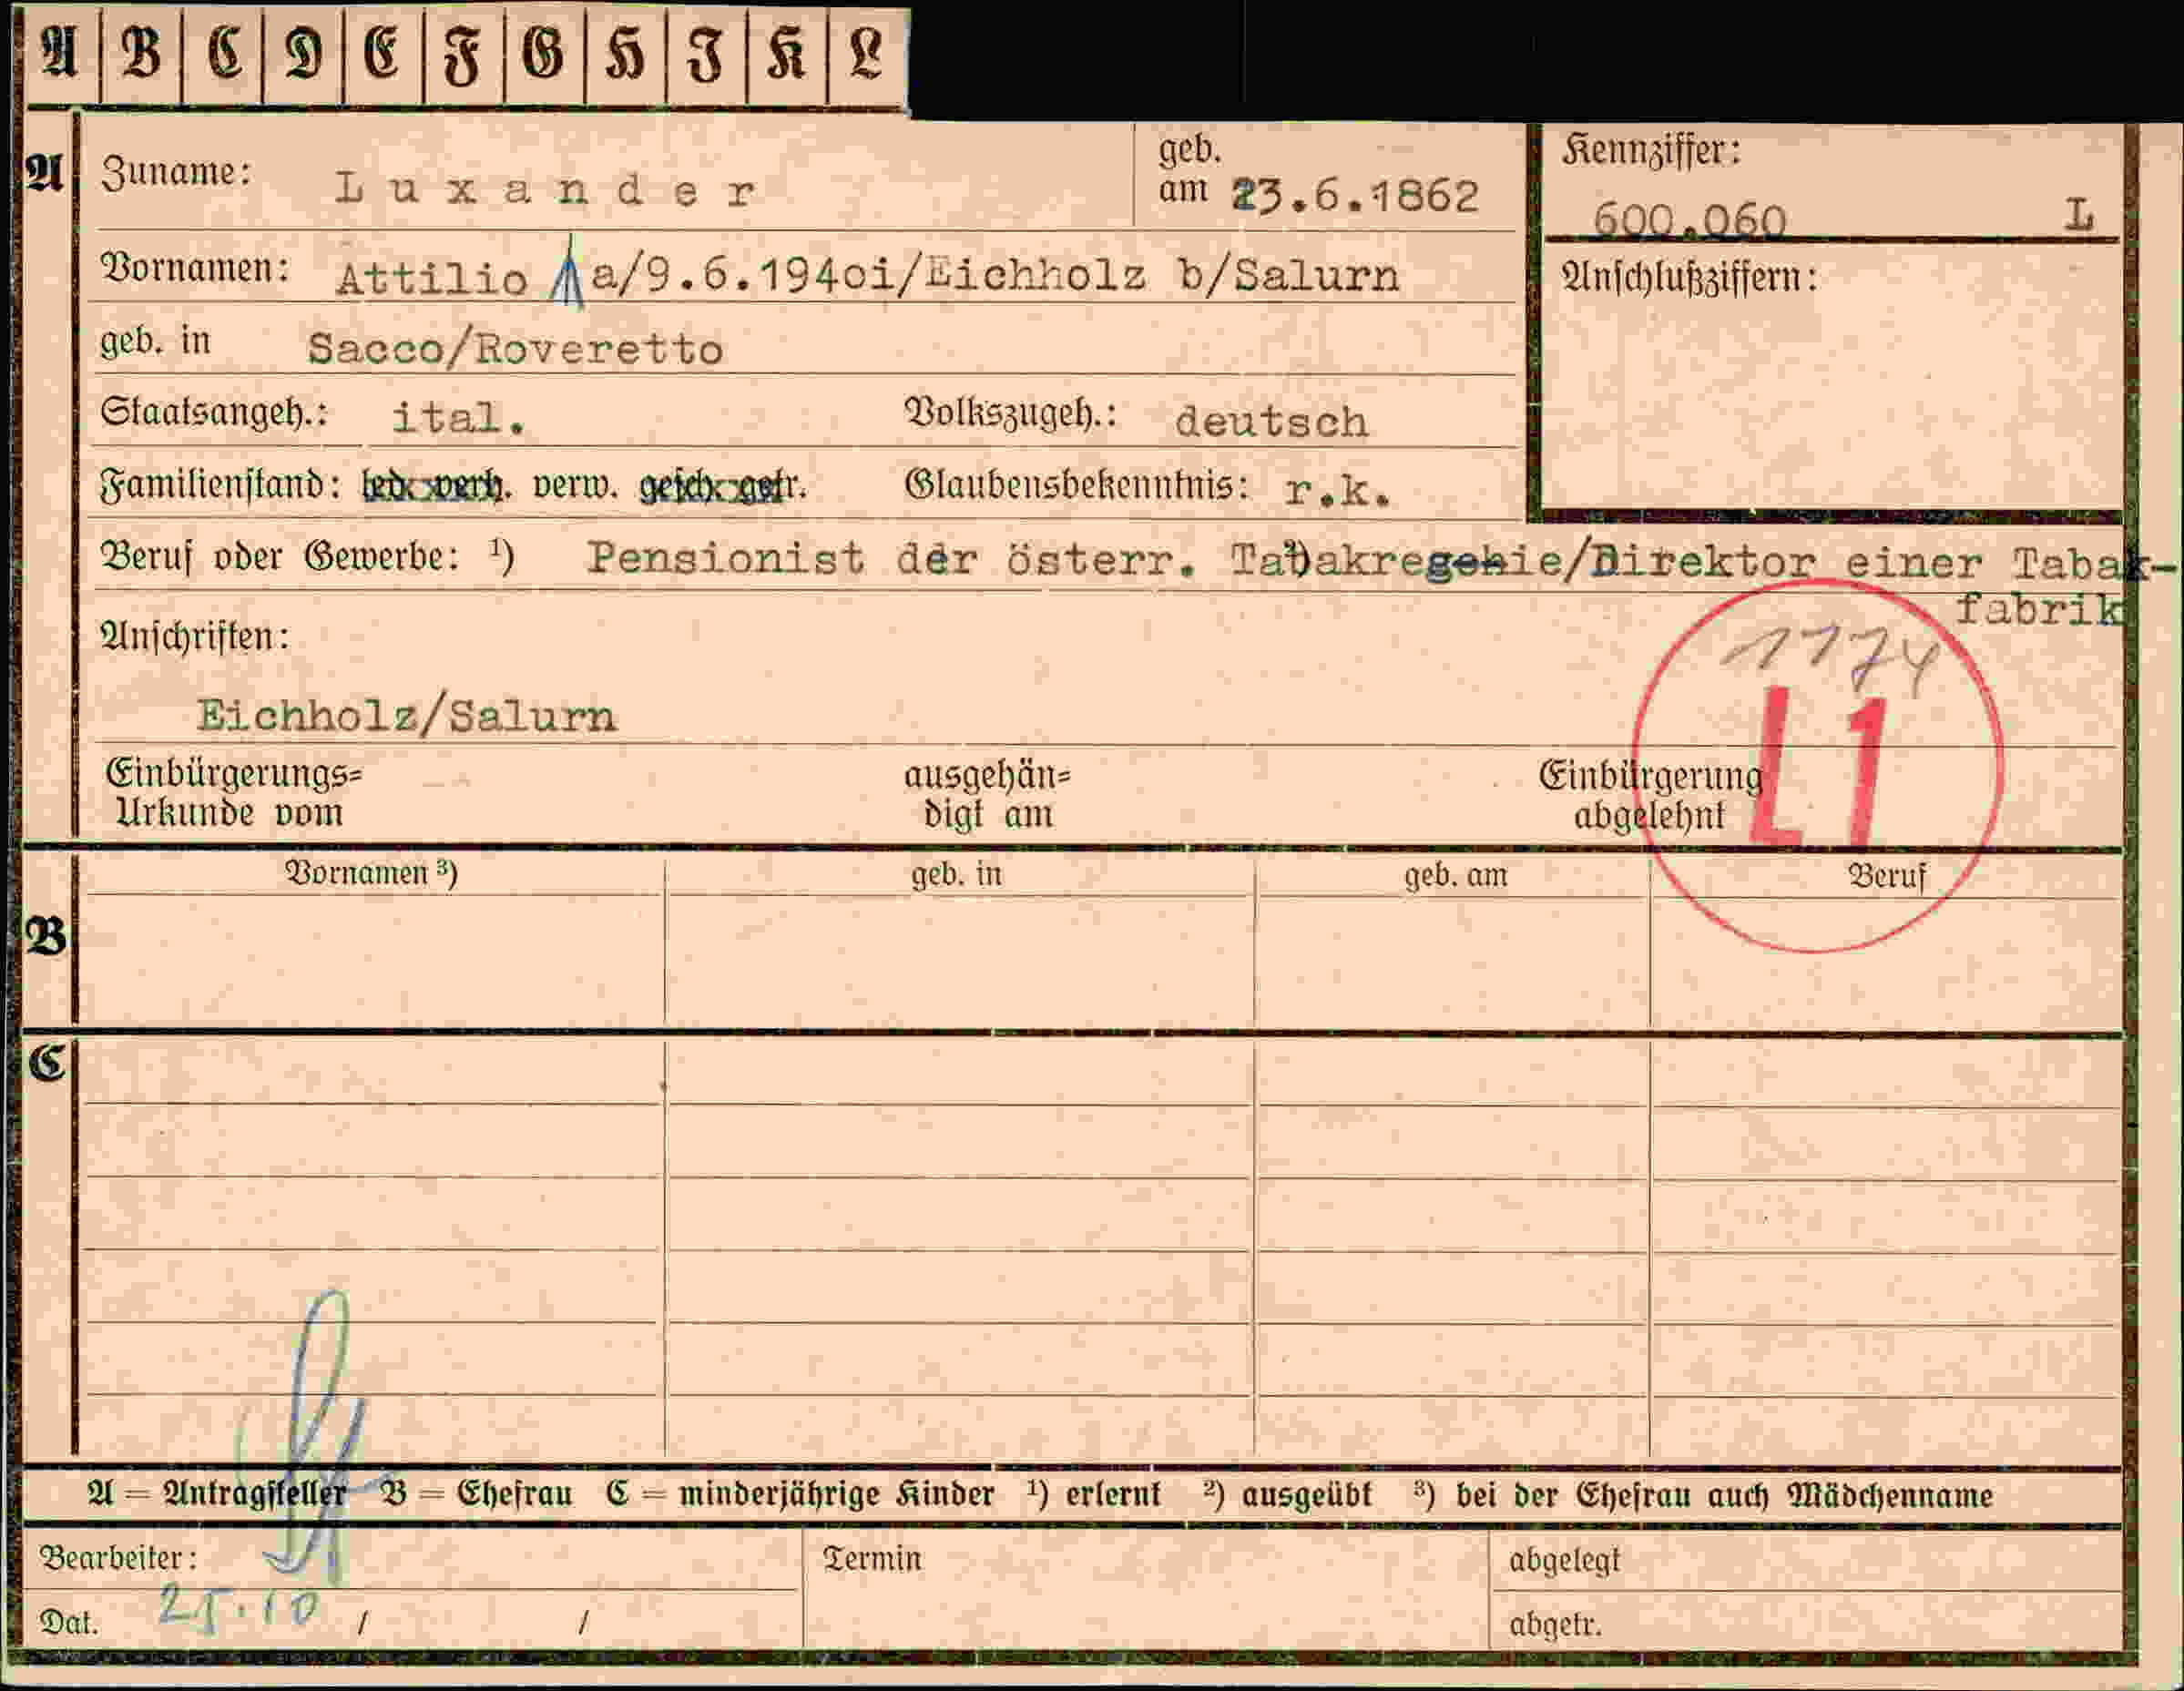 A B C D E F G H I K L
A Zuname: Luxander geb. am 23.6.1862 Kennziffer: 600.060 L
Vornamen: Attilio a/9.6.1940i/Eichholz b/Salurn Anschlußziffern:
geb. in Sacco/Roveretto
Staatsangeh.: ital. Volkszugeh.: deutsch
Familienstand: led. verh. verw. gesch. getr. Glaubensbekenntnis: r.k.
Beruf oder Gewerbe: ¹) Pensionist der österr. Tabakregie/Direktor einer Tabak-
fabrik
Anschriften: 1174
Eichholz/Salurn L1
Einbürgerungs= ausgehän= Einbürgerung
Urkunde vom digt am abgelehnt
Vornamen ³) geb. in geb. am Beruf
B
C
A = Antragsteller B = Ehefrau C = minderjährige Kinder ¹) erlernt ²) ausgeübt ³) bei der Ehefrau auch Mädchenname
Bearbeiter: Termin abgelegt
Dat. 25.10 / / abgetr.